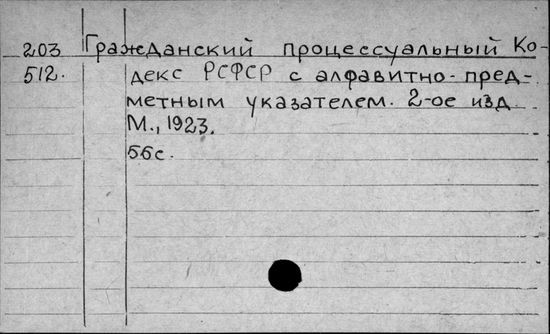 203 Гражданский процессуальный Ко-
512. декс РСФСР с алфавитно-пред-
метным указателем. 2-ое изд
М., 1923.
56с.